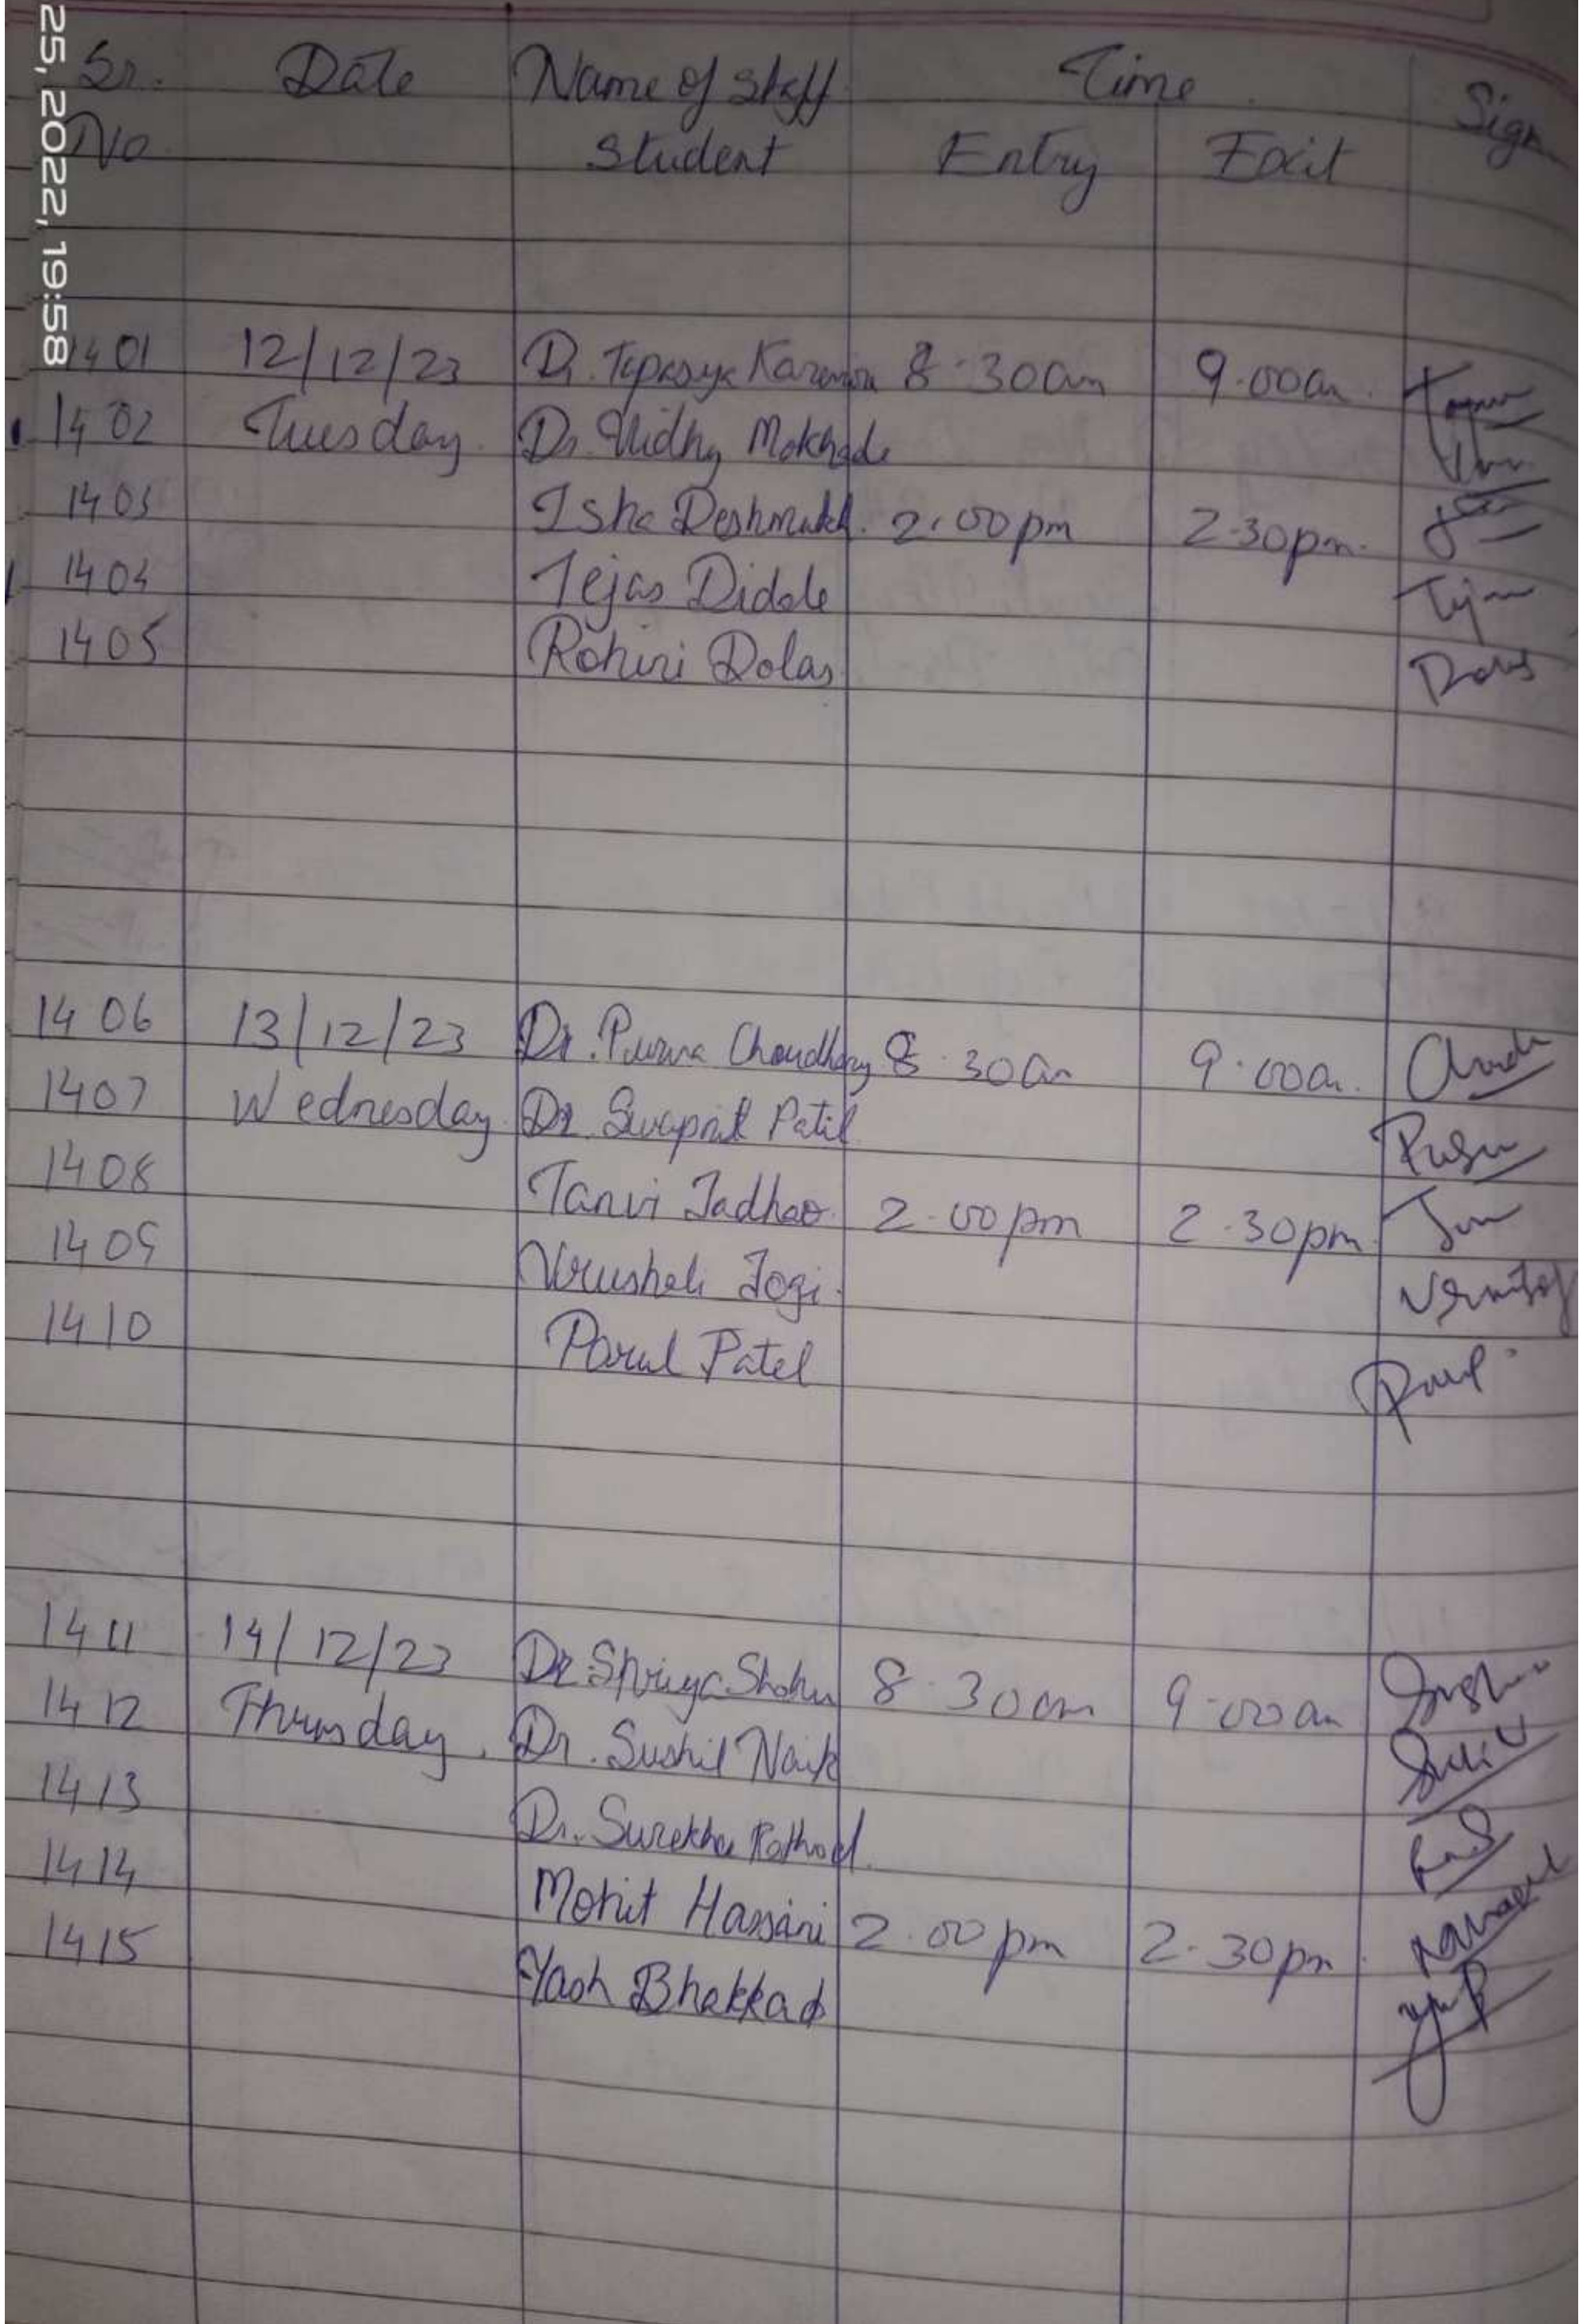 25, 2022, 19:58
Sr. Date Name of Staff Time Sign
No Student Entry Exit
1401 12/12/23 Dr. Tapasya 8.30am 9.00am
1402 Tuesday Dr. Vidhy Mokhade
1403 Isha Deshmukh. 2.00pm 2.30pm.
1404 Tejas Didole
1405 Rohini Dolas
1406 13/12/23 Dr. Purva Choudhary 8.30am 9.00am.
1407 Wednesday Dr. Swapnil Patil
1408 Tanvi Jadhao 2.00pm 2.30pm
1409 Vrushali Jogi.
1410 Parul Patel
1411 14/12/23 Dr. Shriya 8.30am 9.00am
1412 Thursday. Dr. Sushil Naik
1413 Dr. Surekha Rathod.
1414 Mohit Hassani 2.00pm 2.30pm
1415 Yash Bhakkad